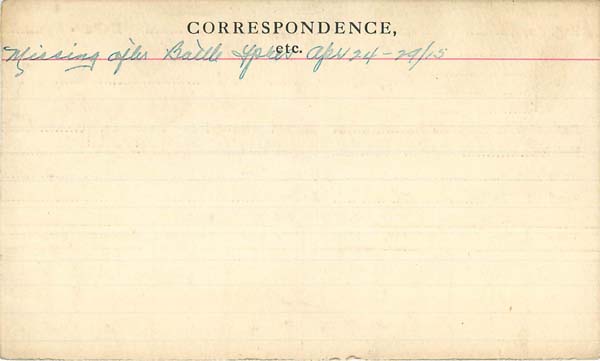 CORRESPONDENCE,
etc.
Missing after Battle Ypres Apr 24-29/15